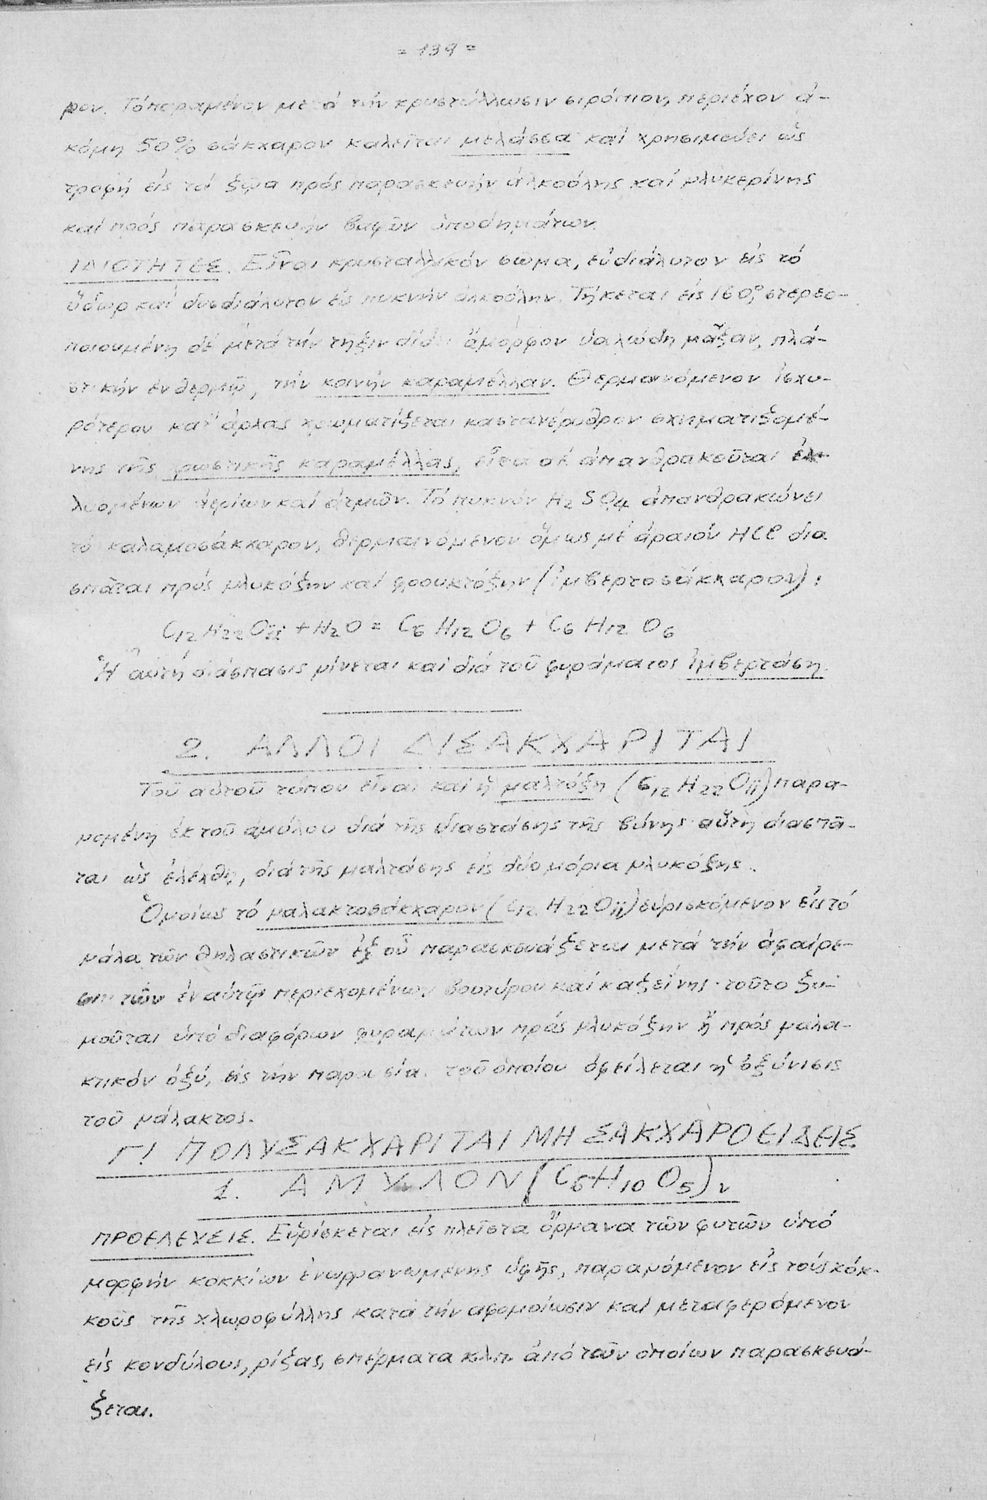 = 139 =
ρον. Τό περαμένον μετά τήν κρυστάλλωσιν σιρόπιον, περιέχον ἀ-
κόμη 50% σάκχαρον καλεῖται μελάσσα καί χρησιμεύει ὡς
τροφή εἰς τά ζῶα πρός παρασκευήν ἀλκοόλης καί γλυκερίνης
καί πρός παρασκευήν βαφῶν ὑποδημάτων.
ΙΔΙΟΤΗΤΕΣ. Εἶναι κρυσταλλικόν σῶμα, εὐδιάλυτον εἰς τό
ὕδωρ καί δυσδιάλυτον εἰς πυκνήν ἀλκοόλην. Τήκεται εἰς 160° στερεο-
ποιουμένη δέ μετά τήν τῆξιν δίδει ἄμορφον ὑαλώδη μᾶζαν, πλά-
στικήν ἐν θερμῷ, τήν κοινήν καραμέλλαν. Θερμαινόμενον ἰσχυ-
ρότερον κατ' ἀρχάς χρωματίζεται καστανέρυθρον σχηματιζομέ-
νης τῆς χρωστικῆς καραμέλλας, εἶτα δέ ἀπανθρακοῦται ἐκ-
λυομένων ἀερίων καί ἀτμῶν. Τό πυκνόν H₂SO₄ ἀπανθρακώνει
τό καλαμοσάκχαρον, θερμαινόμενον ὅμως μέ ἀραιόν HCl δια
σπᾶται πρός γλυκόζην καί φρουκτόζην (ἰμβερτοσάκχαρον):
C₁₂H₂₂O₁₁ + H₂O = C₆H₁₂O₆ + C₆H₁₂O₆
Ἡ αὐτή διάσπασις γίνεται καί διά τοῦ φυράματος ἰμβερτάση.
2. ΑΛΛΟΙ ΔΙΣΑΚΧΑΡΙΤΑΙ
Τοῦ αὐτοῦ τύπου εἶναι καί ἡ μαλτόζη (C₁₂H₂₂O₁₁) παρα-
γομένη ἐκ τοῦ ἀμύλου διά τῆς διαστάσης τῆς βύνης· αὕτη διασπᾶ-
ται ὡς ἐλέχθη, διά τῆς μαλτάσης εἰς δύο μόρια γλυκόζης.
Ὁμοίως τό γαλακτοσάκχαρον (C₁₂H₂₂O₁₁) εὑρισκόμενον εἰς τό
γάλα τῶν θηλαστικῶν ἐξ οὗ παρασκευάζεται μετά τήν ἀφαίρε-
σιν τῶν ἐν αὐτῷ περιεχομένων βουτύρου καί καζεΐνης· τοῦτο ζυ-
μοῦται ὑπό διαφόρων φυραμάτων πρός γλυκόζην ἤ πρός γαλα-
κτικόν ὀξύ, εἰς τήν παρουσίαν τοῦ ὁποίου ὀφείλεται ἡ ὀξύνισις
τοῦ γάλακτος.
Γ! ΠΟΛΥΣΑΚΧΑΡΙΤΑΙ ΜΗ ΣΑΚΧΑΡΟΕΙΔΕΙΣ
1. ΑΜΥΛΟΝ (C₆H₁₀O₅)ν
ΠΡΟΕΛΕΥΣΙΣ. Εὑρίσκεται εἰς πλεῖστα ὄργανα τῶν φυτῶν ὑπό
μορφήν κοκκίων ἐνωργανωμένης ὑφῆς, παραγόμενον εἰς τούς κόκ-
κους τῆς χλωροφύλλης κατά τήν ἀφομοίωσιν καί μεταφερόμενον
εἰς κονδύλους, ρίζας, σπέρματα κ.λπ. ἀπό τῶν ὁποίων παρασκευά-
ζεται.